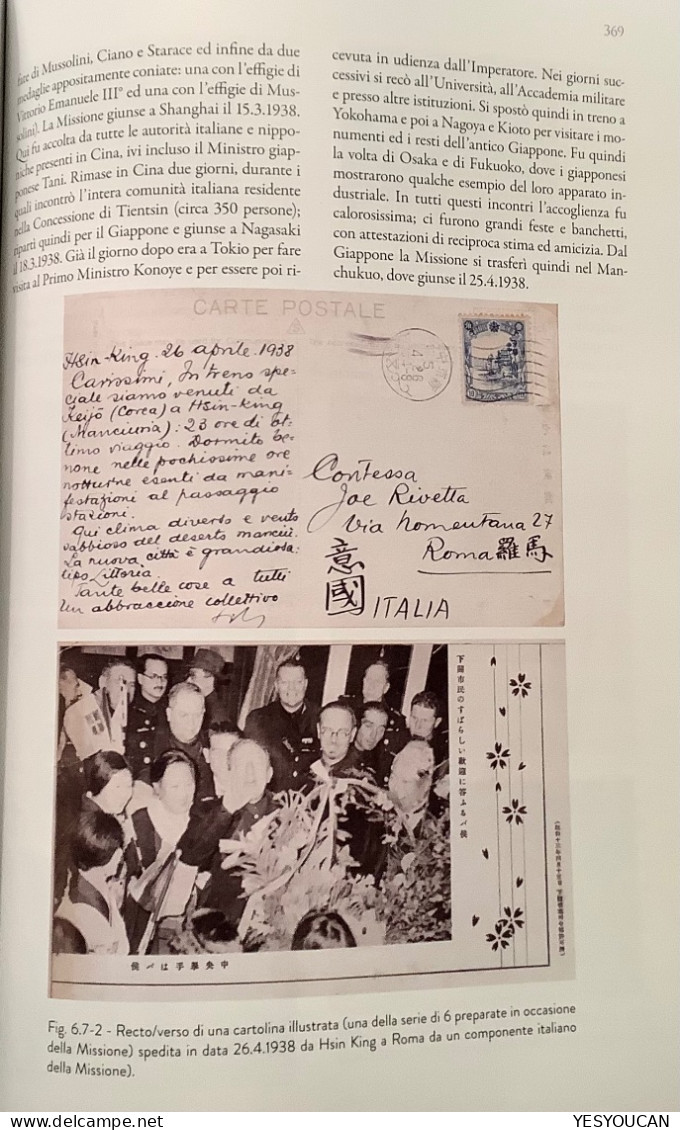 369
fate di Mussolini, Ciano e Starace ed infine da due
medaglie appositamente coniate: una con l'effigie di
Vittorio Emanuele III° ed una con l'effigie di Mus-
solini). La Missione giunse a Shanghai il 15.3.1938.
Qui fu accolta da tutte le autorità italiane e nippo-
niche presenti in Cina, ivi incluso il Ministro giap-
ponese Tani. Rimase in Cina due giorni, durante i
quali incontrò l'intera comunità italiana residente
nella Concessione di Tientsin (circa 350 persone);
ripartì quindi per il Giappone e giunse a Nagasaki
il 18.3.1938. Già il giorno dopo era a Tokio per fare
visita al Primo Ministro Konoye e per essere poi ri-
cevuta in udienza dall'Imperatore. Nei giorni suc-
cessivi si recò all'Università, all'Accademia militare
e presso altre istituzioni. Si spostò quindi in treno a
Yokohama e poi a Nagoya e Kioto per visitare i mo-
numenti ed i resti dell'antico Giappone. Fu quindi
la volta di Osaka e di Fukuoko, dove i giapponesi
mostrarono qualche esempio del loro apparato in-
dustriale. In tutti questi incontri l'accoglienza fu
calorosissima; ci furono grandi feste e banchetti,
con attestazioni di reciproca stima ed amicizia. Dal
Giappone la Missione si trasferì quindi nel Man-
chukuo, dove giunse il 25.4.1938.
CARTE POSTALE
Hsin-King. 26 aprile. 1938
Carissimi, In treno spe-
ciale siamo venuti da
Keijō (Corea) a Hsin-King
(Manciuria): 23 ore di ot-
timo viaggio. Dormito be-
none nelle pochissime ore
notturne esenti da mani-
festazioni al passaggio
stazioni.
Qui clima diverso e vento
sabbioso del deserto manciù.
La nuova città è grandiosa:
tipo Littoria.
Tante belle cose a tutti
Un abbraccione collettivo
Contessa
Joe Rivetta
Via Nomentana 27
Roma 羅馬
意國 ITALIA
下關市民のすばらしい歓迎に答ふるパ侯
侯パは手擧央中
Fig. 6.7-2 - Recto/verso di una cartolina illustrata (una della serie di 6 preparate in occasione
della Missione) spedita in data 26.4.1938 da Hsin King a Roma da un componente italiano
della Missione).
YESYOUCAN